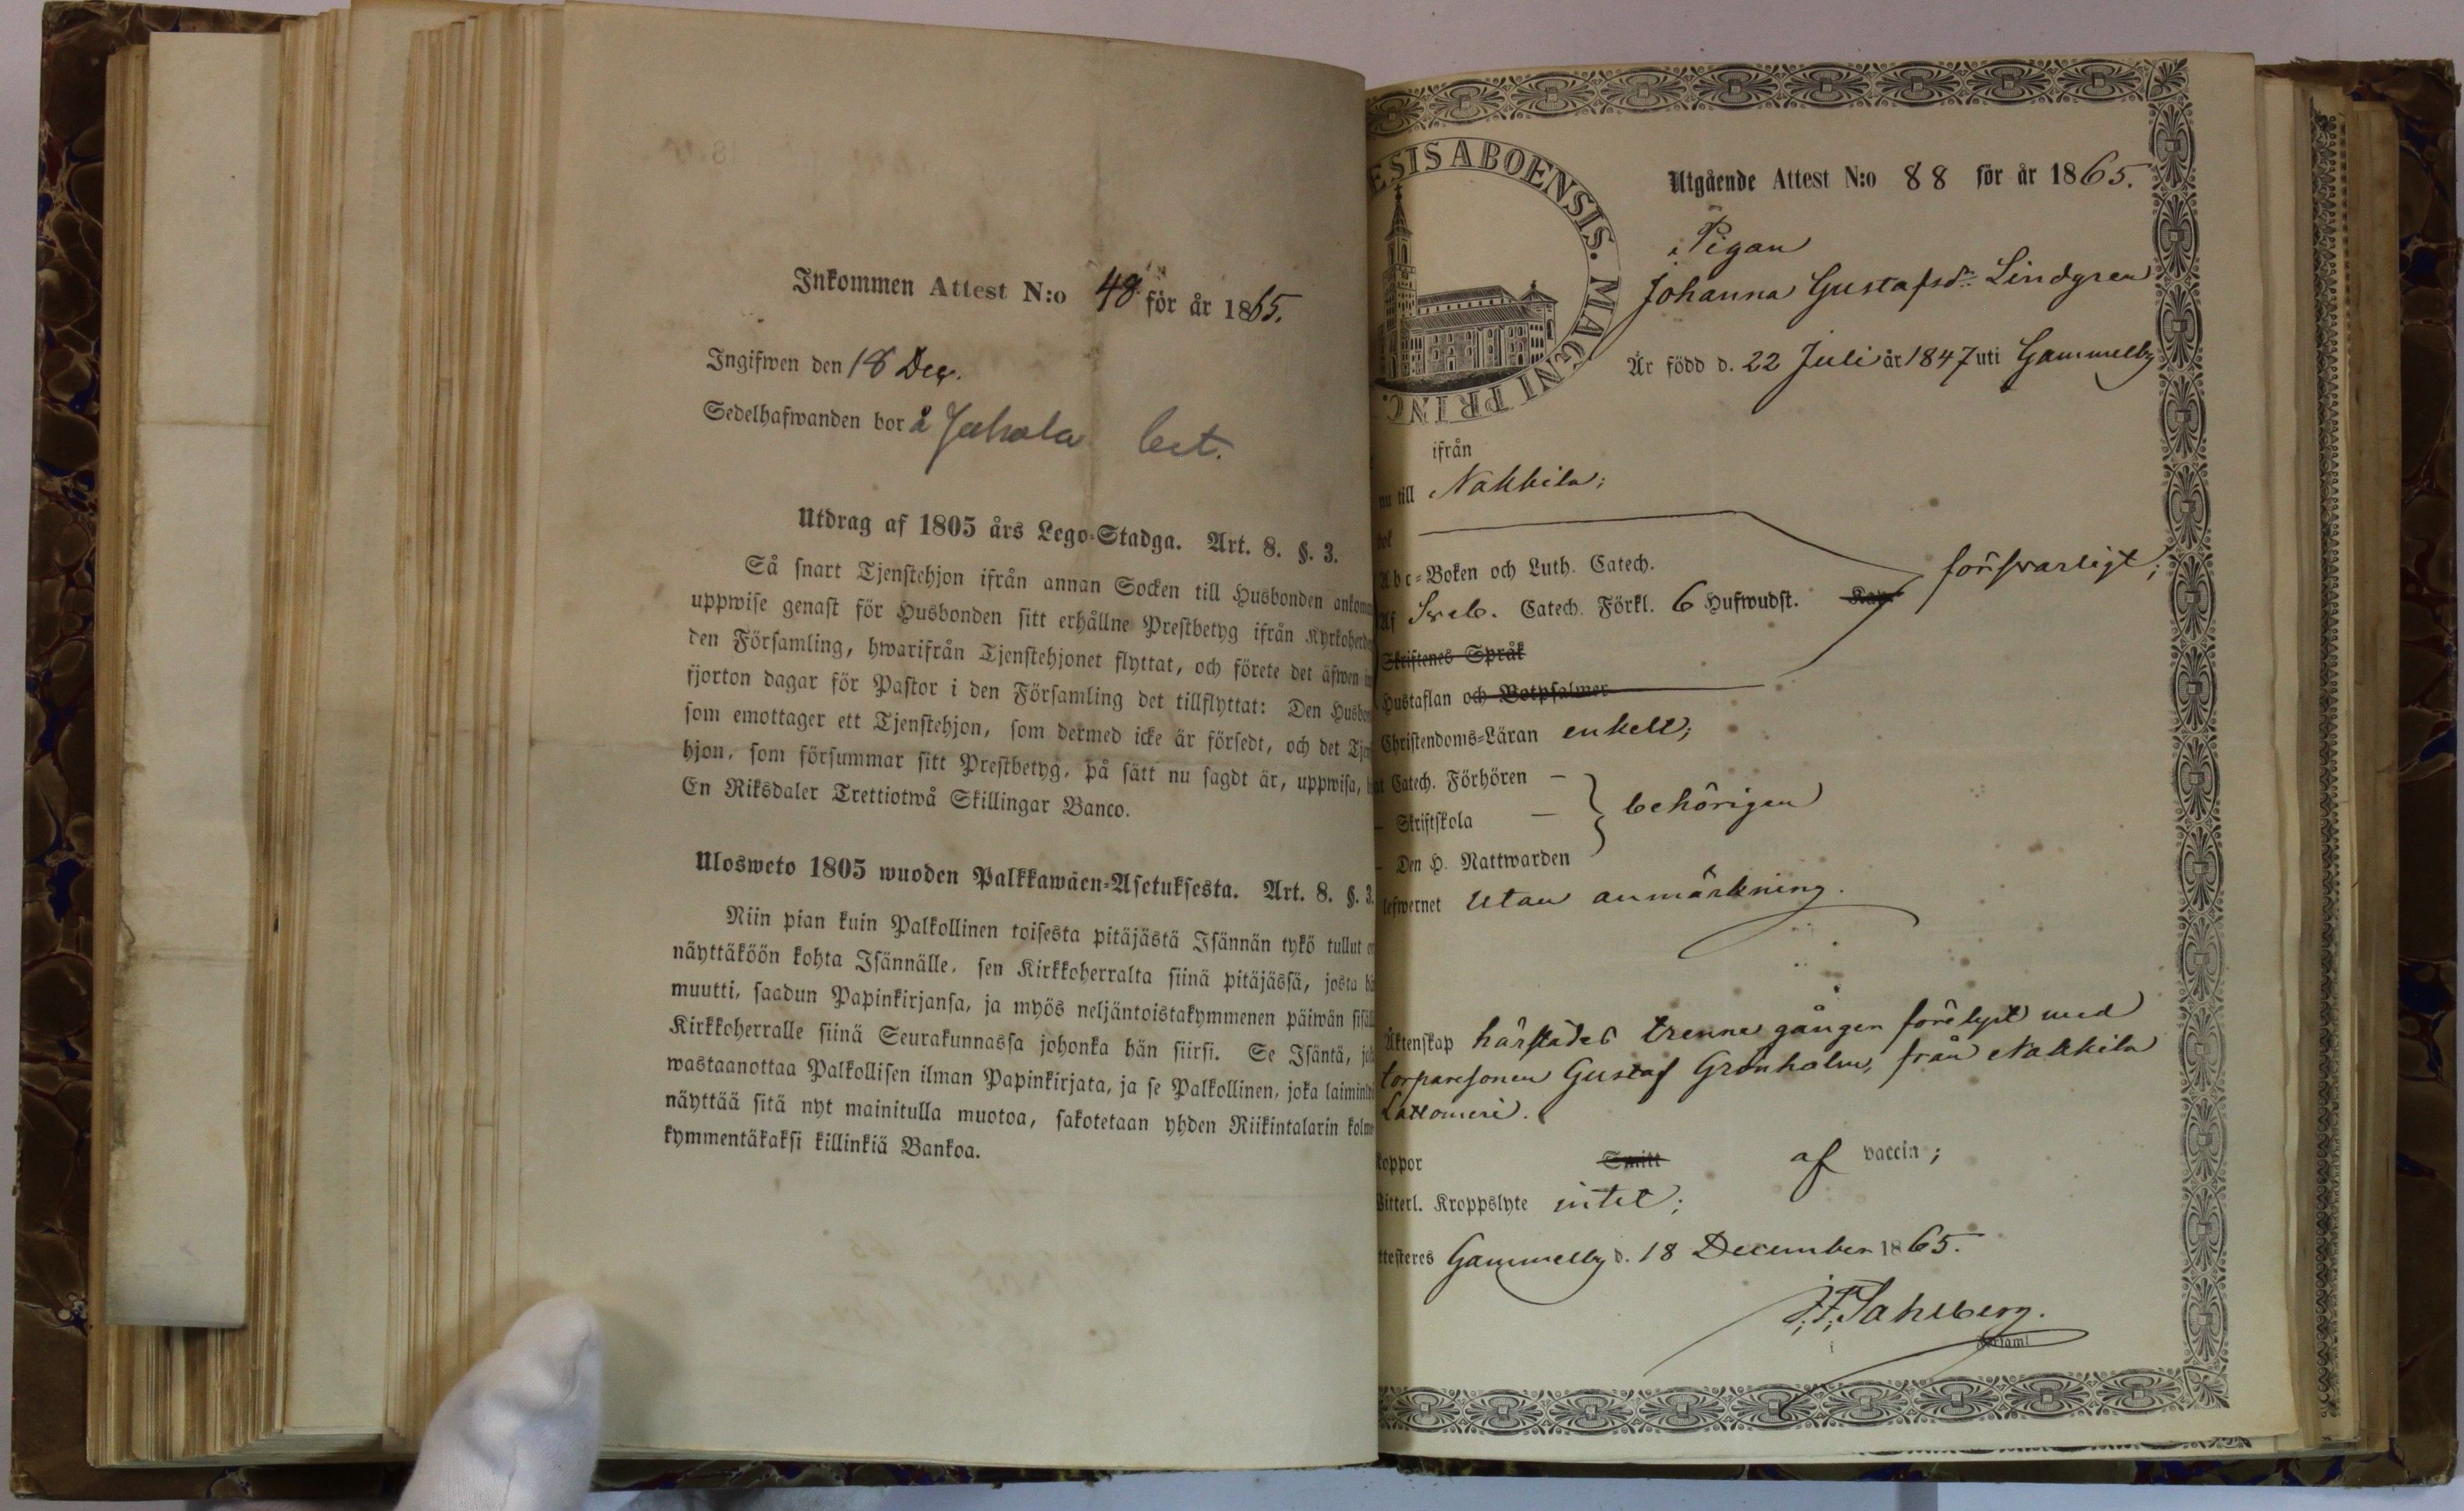 Inkommen Attest N:o 48 för år 1865.
Ingifwen den 18 Dec.
Sedelhafwanden bor å
Utdrag af 1805 års Lego-Stadga. Art. 8. §. 3.
Så snart Tjenstehjon ifrån annan Socken till Husbonden
uppwise genast för Husbonden sitt erhållne Prestbetyg ifrån
den Församling, hwarifrån Tjenstehjonet flyttat, och förete det äfwen
fjorton dagar för Pastor i den Församling det tillflyttat: Den
som emottager ett Tjenstehjon, som dermed icke är försedt, och det
hjon, som försummar sitt Prestbetyg, på sätt nu sagdt är, uppwisa,
En Riksdaler Trettiotwå Skillingar Banco.
Ulosweto 1805 wuoden Palkkawäen-Asetuksesta. Art. 8. §. 3.
Niin pian kuin Palkollinen toisesta pitäjästä Isännän tykö tullut
näyttäköön kohta Isännälle, sen Kirkkoherralta siinä pitäjässä, josta
muutti, saadun Papinkirjansa, ja myös neljäntoistakymmenen päiwän
Kirkkoherralle siinä Seurakunnassa johonka hän siirsi. Se Isäntä,
wastaanottaa Palkollisen ilman Papinkirjata, ja se Palkollinen, joka
näyttää sitä nyt mainitulla muotoa, sakotetaan yhden Riikintalarin
kymmentäkaksi killinkiä Bankoa.
ESIS ABOENSIS. MAGNI PRINC.
Utgående Attest N:o 88 för år 1865.
Pigan
Johanna Gustafsdr Lindgren
Är född d. 22 Juli år 1847 uti Gammelby
ifrån
nu till Nakkila;
bok
Abc-Boken och Luth. Catech. försvarligt;
Af Sveb. Catech. Förkl. 6 Hufwudst. Kap.
Skriftenes Språk
Hustaflan och Botpsalmer
Christendoms-Läran enkelt;
Catech. Förhören —
Skriftskola — behörigen
Den H. Nattwarden
lefwernet utan anmärkning.
Äktenskap härstädes trenne gånger förelyst med
torparesonen Gustaf Grönholm, från Nakkila
Lattomeri.
koppor Smitt af vaccin;
Witterl. Kroppslyte intet;
Attesteres Gammelby d. 18 December 1865.
J. F. Sahlberg.
i Församl